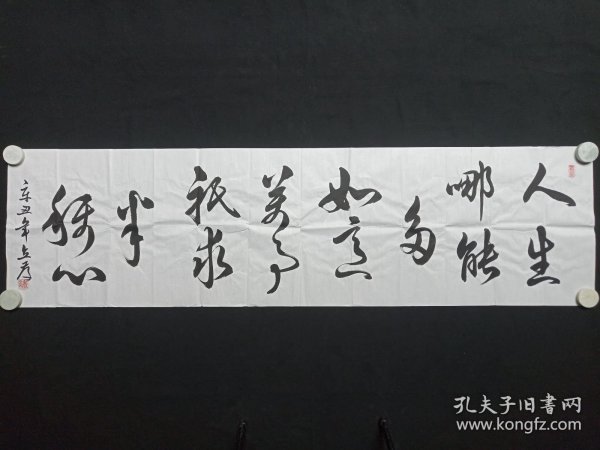 人生
哪能
多
如意
万事
祇求
半
称心
辛丑年
孔夫子旧書网
www.kongfz.com